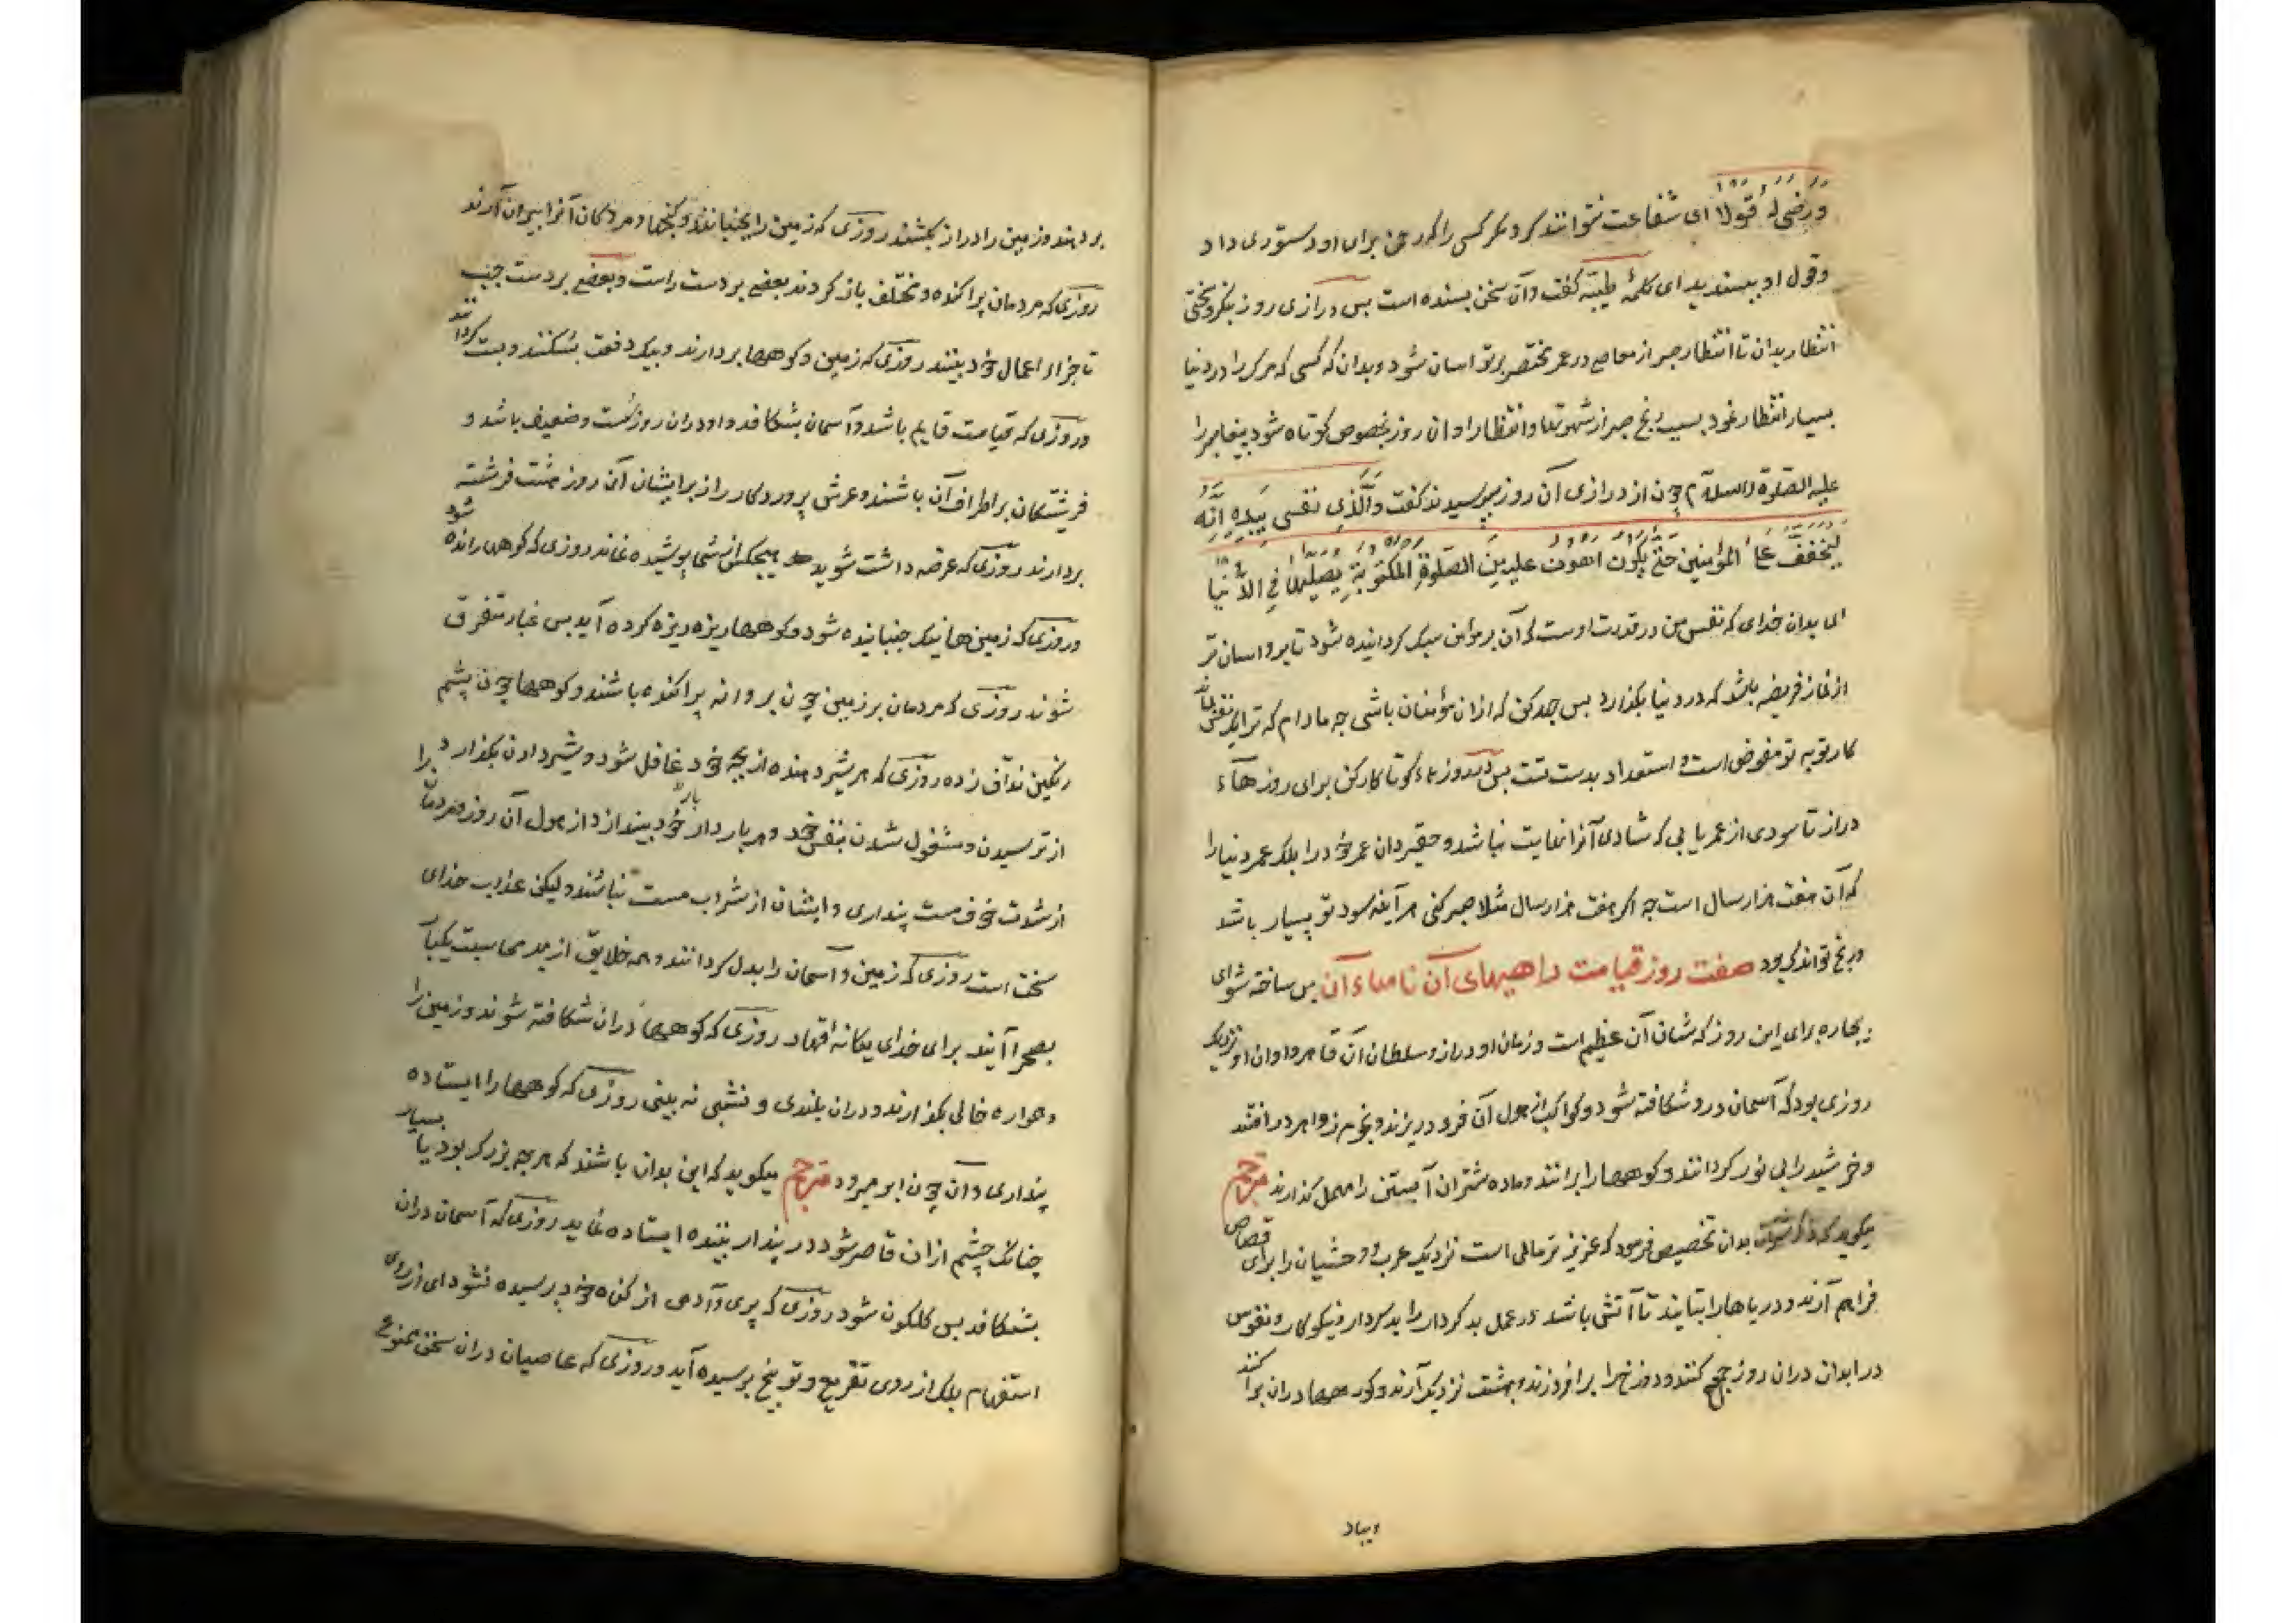 وَرَضِیَ لَهُ قَوْلًا ای شفاعت نتوانند کرد مکر کسی را که رحمن برای او دستوری داد
وقول او بپسندید ای کلمهٔ طیبّه کفت وآن سخن بسنده است بس درازی روز بنکر وسختی
انتظار بدان تا انتظار صبر از معاصی در عمر مختصر بر تو اسان شود وبدان که کسی که مرک را در دنیا
بسیار انتظار نمود بسبب رنج صبر از شهوتها وانتظار او ان روز بخصوص کوتاه شود پیغامبر را
علیه الصّلوة والسلام چون از درازی آن روز بپرسیدند کفت وَالَّذِی نفسی بِیَدِهِ اِنَّهُ
لیخففّ عَلَی المؤمنین حَتّٰی یَکُونَ اَهْوَنَ علیه مِنَ الصّلوةِ المکتوبةِ یصلیها فِی الدُّنیَا
ای بدان خدای که نفس من در قدرت اوست که آن بر مؤمن سبک کردانیده شود تا برو اسان تر
از نماز فریضه باشد که در دنیا بکذارد بس جهد کن که ازان مؤمنان باشی چه مادام که ترا نفس مانده
کار توبه تو مفوض است و استعداد بدست تست بس در روزهاء کوتا کار کن برای روزهآء
دراز تا سودی از عمر یابی که شادی آنرا نهایت نباشد وحقیر دان عمر خود را بلکه عمر دنیا را
که آن هفت هزار سال است چه اکر هفت هزار سال مثلا صبر کنی هر آینه سود تو بسیار باشد
ورنج تو اندک بود صفت روز قیامت داهیهای آن نامهاء آن بس ساخته شو ای
بیچاره برای این روز که شان آن عظیم است وزمان او دراز وسلطان آن قاهر واوان او نزدیک
روزی بود که آسمان درو شکافته شود وکواکب از هول آن فرود ریزند ونجوم زواهر در افتند
وخرشید را بی نور کردانند وکوهها را برانند وماده شتران آبستن را مهمل کذارند مترجم
میکوید که ذکر شتران بدان تخصیص فرمود که عزیز تر مالی است نزدیک عرب و وحشیان را برای قصاص
فراهم آرند ودریاها را بتابند تا آتشی باشد در عمل بد کردار را بد کردار ونیکوکار ونفوس
در ابدان دران روز جمع کنند ودوزخ را بر افروزند وبهشت نزدیک آرند وکوهها دران برآکنند
وبباد
بر دهند وزمین را دراز بکشند روزی که زمین را بجنبانند وکنجها ومردکان آنرا بیرون آرند
روزی که مردمان پراکنده ومختلف باز کردند بعضی بر دست راست وبعضی بر دست چپ
تا جزاء اعمال خود بینند روزی که زمین وکوهها بردارند وبیک دفعت بشکنند وپست کردانند
وروزی که قیامت قایم باشد وآسمان بشکافد واو دران روز سست وضعیف باشد و
فریشتکان بر اطراف آن باشند وعرش پروردکار را زبر ایشان آن روز هشت فرشته
بردارند روزی که عرضه داشت شوید هیچکس از شما پوشیده نماند روزی که کوهها رانده شود
وروزی که زمین هانیک جنبانیده شود وکوهها ریزه ریزه کرده آید بس غبار متفرق
شوند روزی که مردمان بر زمین چون پروانه پراکنده باشند وکوهها چون پشم
رنکین ندّاف زده روزی که هر شیر دهنده از بچه خود غافل شود وشیر دادن بکذارد
از ترسیدن ومشغول شدن بنفس خود وهر باردار بار خود بیندازد از هول آن روز ومردمان را
از شدت خوف مست پنداری وایشان از شراب مست نباشند ولیکن عذاب خدای
سخت است روزی که زمین وآسمان را بدل کردانند وهمه خلایق از بهر محاسبت یکبار
بصحرا آیند برای خدای یکانه قهار روزی که کوهها دران شکافته شوند وزمین را
وهواره خالی بکذارند ودران بلندی ونشیبی نه بینی روزی که کوهها را ایستاده
پنداری وآن چون ابر میرود مترجم میکوید که این بدان باشند که هر چه بزرک بود یا بسیار
چنانک چشم ازان قاصر شود در پندار بیننده ایستاده نماید روزی که آسمان دران
بشکافد بس کلکون شود روزی که پری وآدمی از کناه خود پرسیده نشود ای از روی
استفهام بلک از روی تقریع وتوبیخ پرسیده آید وروزی که عاصیان دران سخن ممنوع